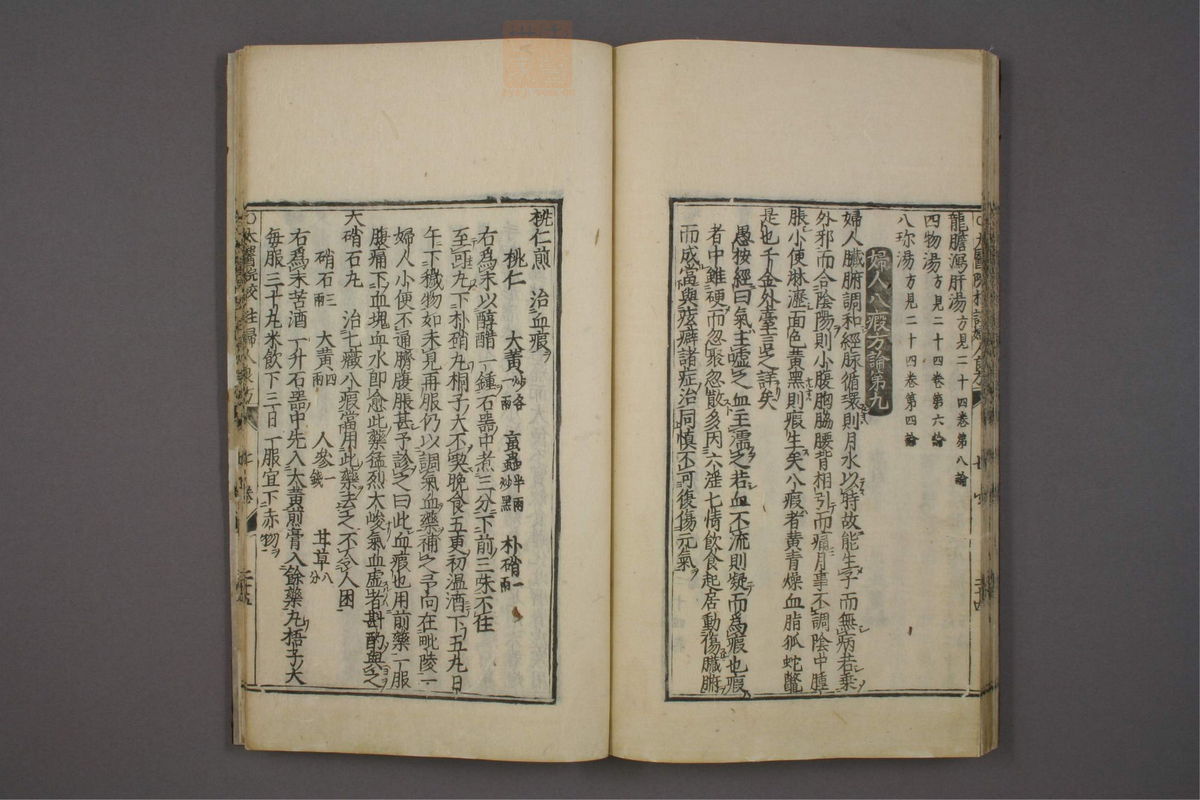 龍膽瀉肝湯方見二十四卷第八論
四物湯方見二十四卷第六論
八珎湯方見二十四卷第四論
婦人八瘕方論第九
婦人臟腑調和經脉循環則月水以時故能生子而無病若乗
外邪而合陰陽則小腹胸脇腰背相引而痛月事不調陰中腫
脹小便淋瀝面色黄黑則瘕生矣八瘕者黄青燥血脂狐蛇鼈
是也千金外臺言之詳矣
愚按經曰氣主噓之血主濡之若血不流則凝而為瘕也瘕
者中雖硬而忽聚忽散多因六淫七情飲食起居動傷臟腑
而成當與痃癖諸症治同慎不可復傷元氣
桃仁煎 治血瘕
桃仁 大黄炒各一兩 䖟蟲半兩炒黑 朴硝一兩
右爲末以醇醋一鍾石器中煮三分下前三味不住
至可丸下朴硝丸桐子大不喫晚食五更初温酒下五丸日
午下穢物如未見再服仍以調氣血藥補之予向在毗陵一
婦人小便不通臍腹脹甚予診之曰此血瘕也用前藥一服
腹痛下血塊血水即愈此藥猛烈太峻氣血虚者斟酌與之
大硝石丸 治七癥八瘕當用此藥去之不令人困
硝石三兩 大黄四兩 人參一錢 甘草八分
右爲末苦酒一升石器中先入大黄煎膏入餘藥丸梧子大
毎服三十丸米飲下三日一服宜下赤物